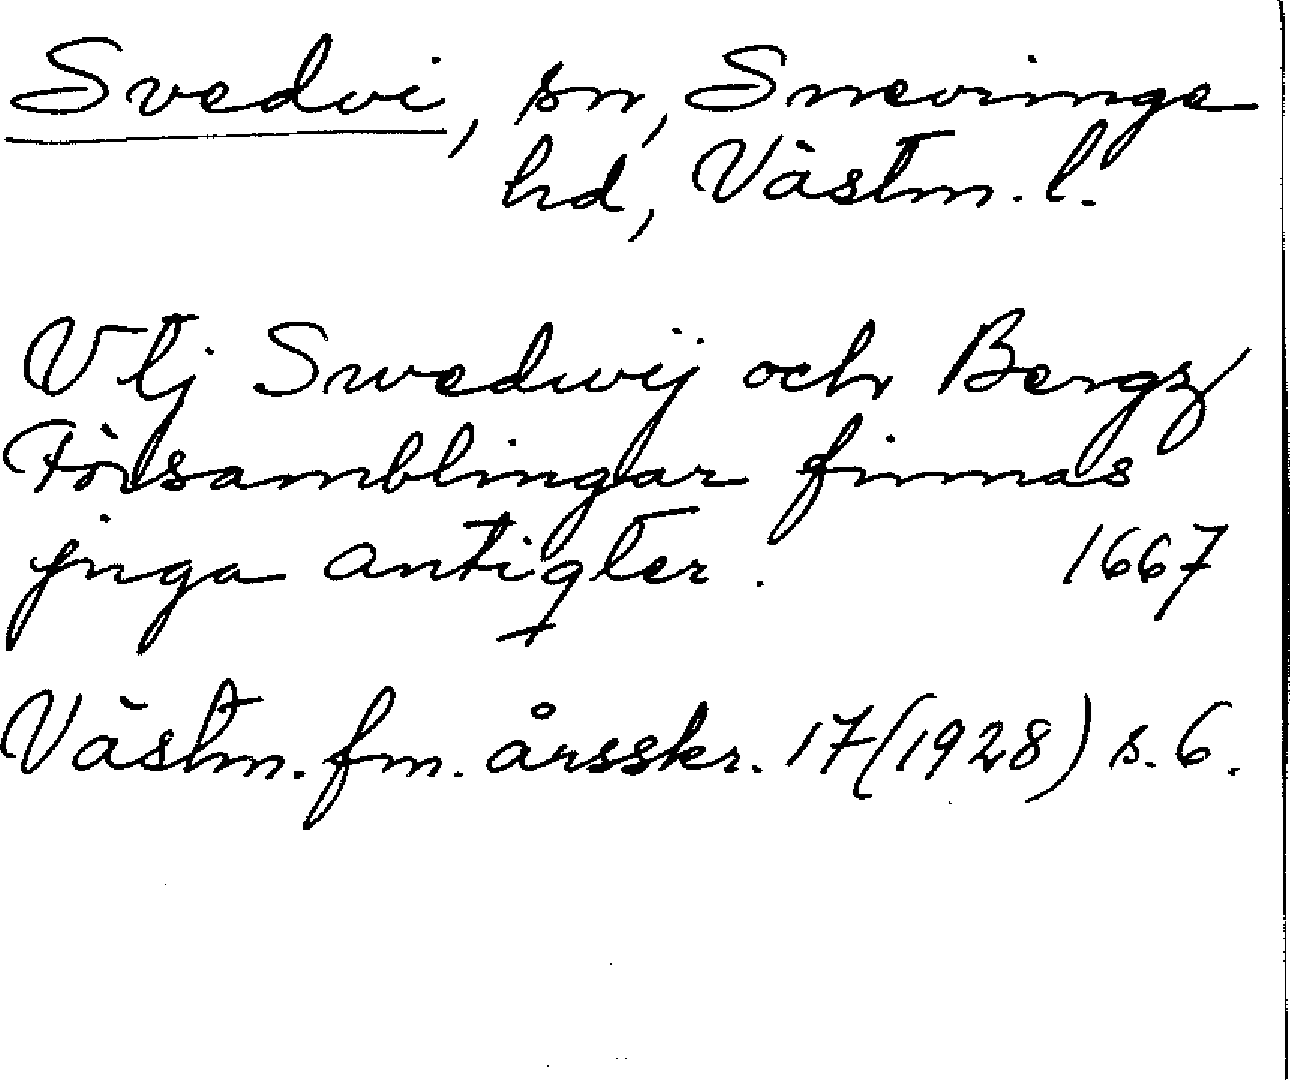 Svedvi, sn, Snevringe
hd, Västm. l.
Vtj Swedwij och Bergz
Församblingar finnas
jnga antiqter. 1667
Västm. fm. årsskr. 17 (1928) s. 6.